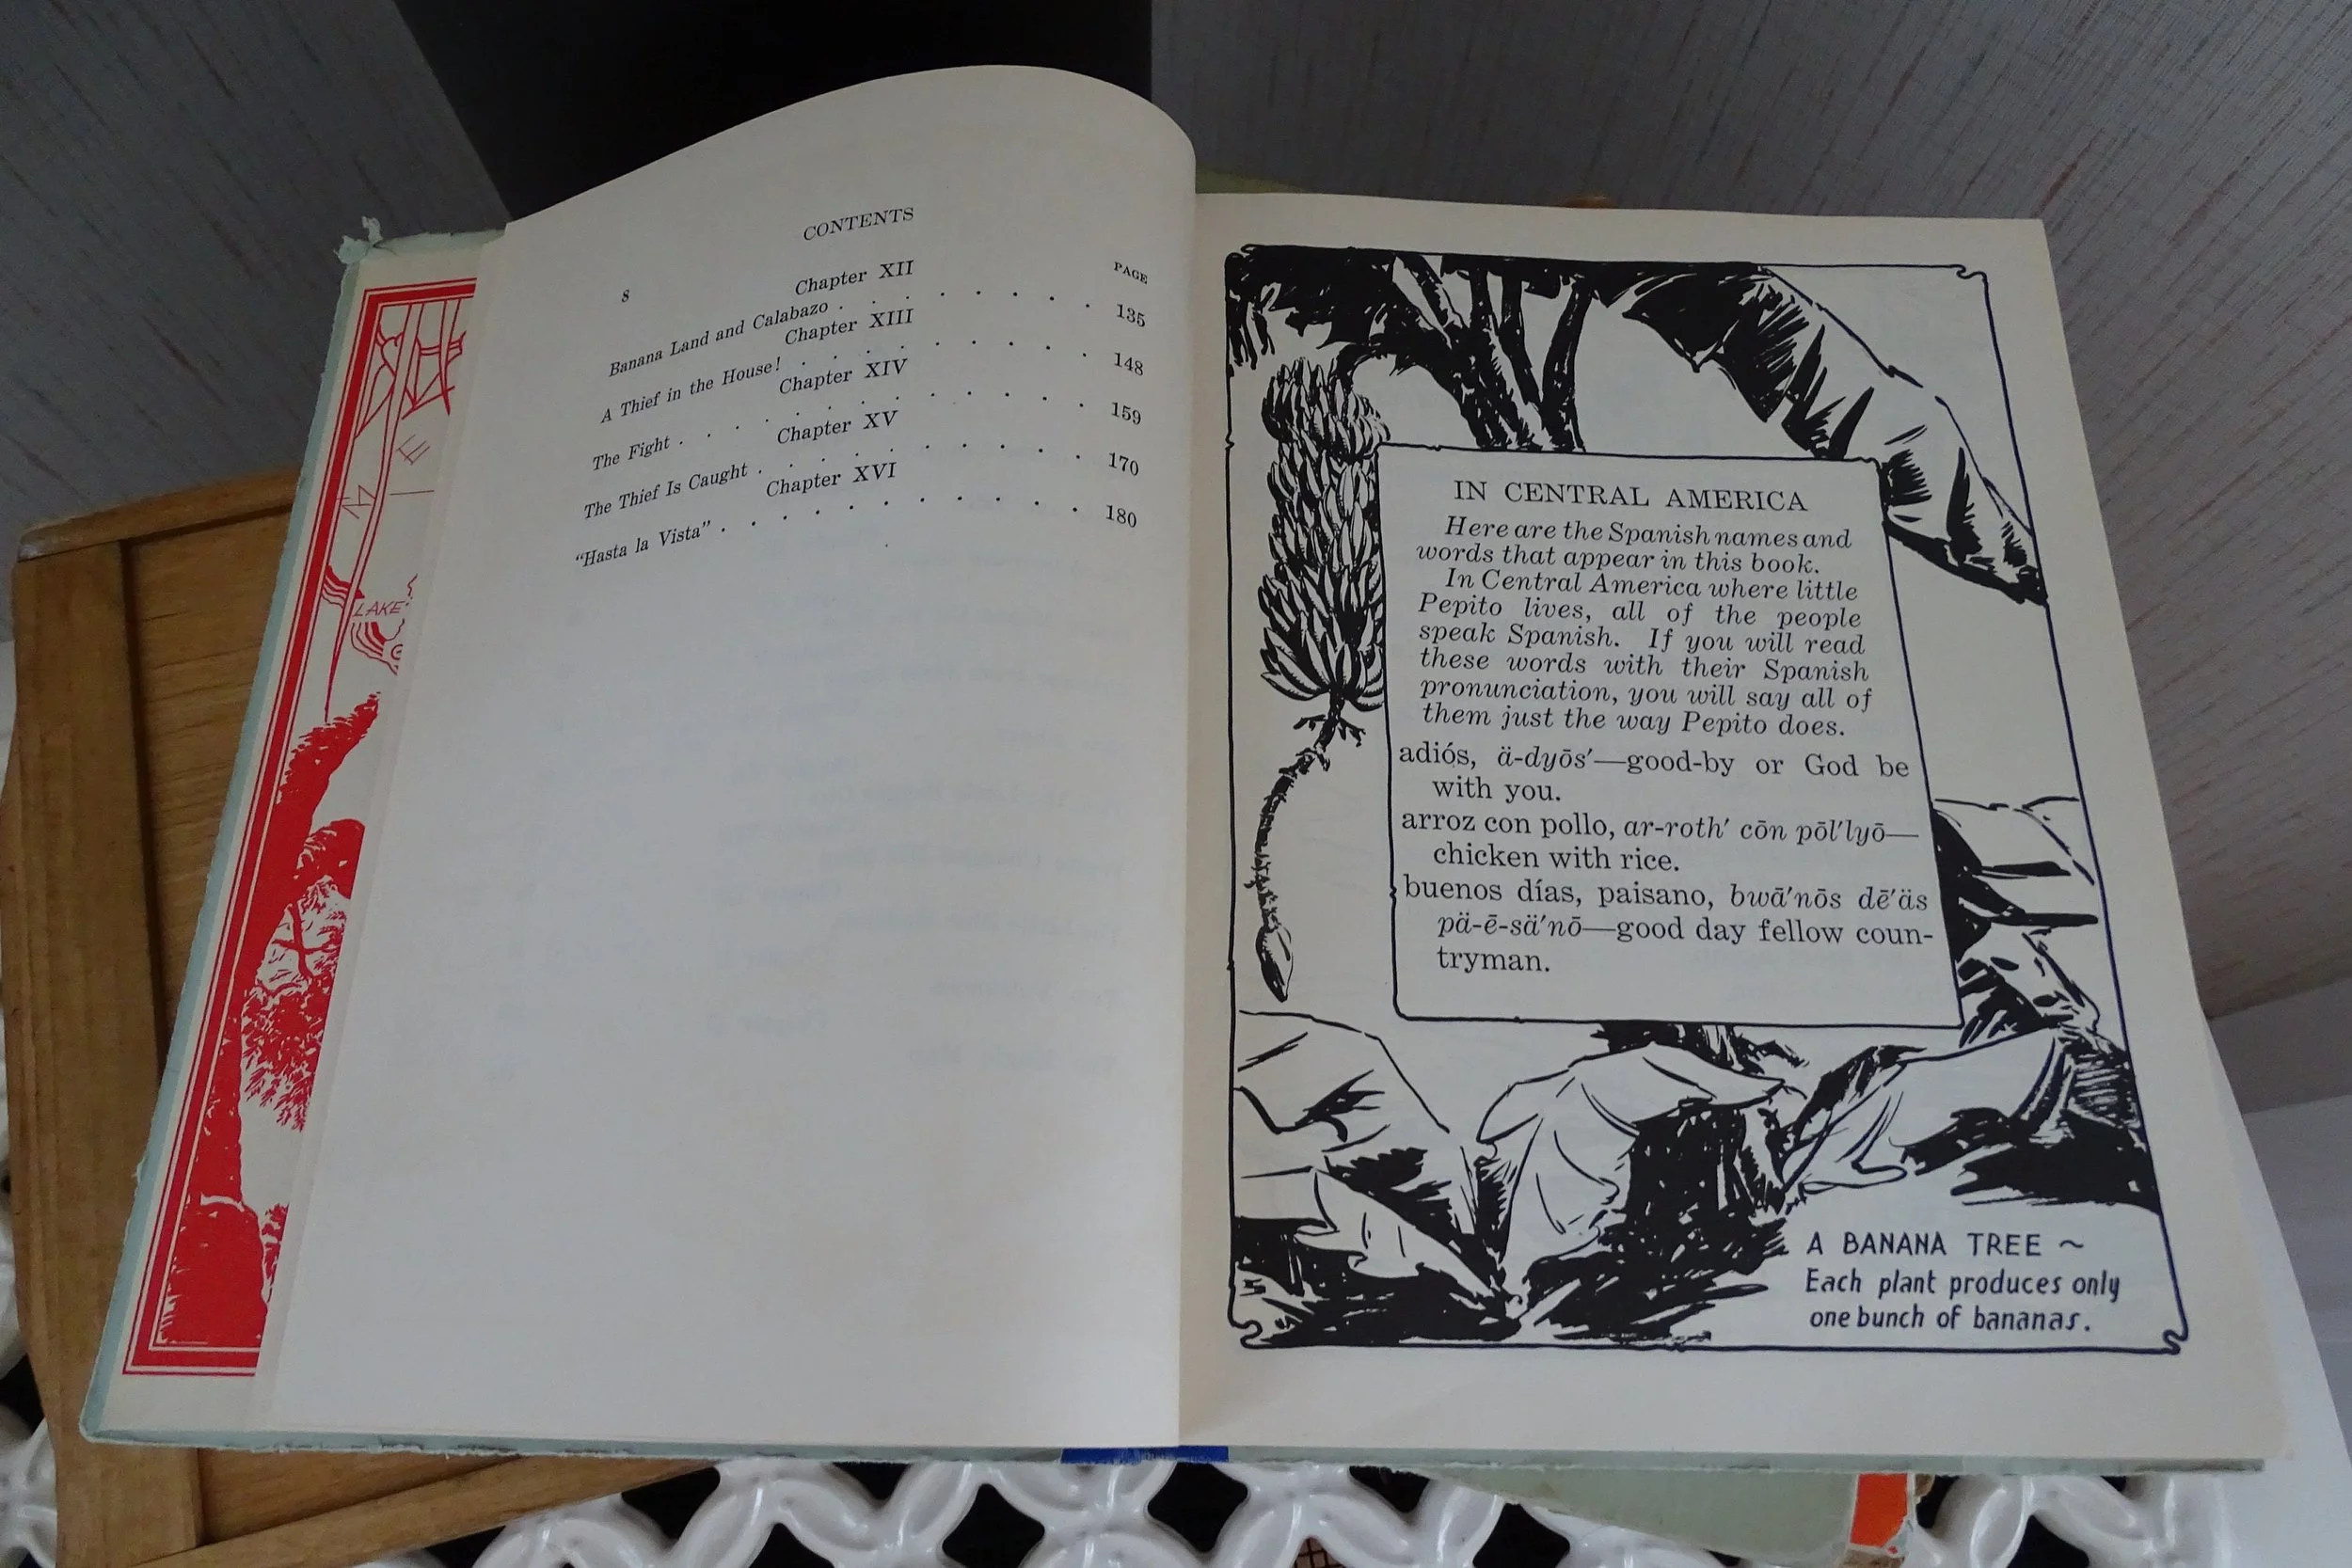 LAKE
CONTENTS
8
PAGE
Chapter XII
Banana Land and Calabazo . . . . . . . . . 135
Chapter XIII
A Thief in the House! . . . . . . . . . . 148
Chapter XIV
The Fight . . . . . . . . . . . . . 159
Chapter XV
The Thief Is Caught . . . . . . . . . . . 170
Chapter XVI
“Hasta la Vista” . . . . . . . . . . . . 180
IN CENTRAL AMERICA
Here are the Spanish names and
words that appear in this book.
In Central America where little
Pepito lives, all of the people
speak Spanish. If you will read
these words with their Spanish
pronunciation, you will say all of
them just the way Pepito does.
adiós, ä-dyōs′—good-by or God be
with you.
arroz con pollo, ar-roth′ cōn pōl′lyō—
chicken with rice.
buenos días, paisano, bwā′nōs dē′äs
pä-ē-sä′nō—good day fellow coun-
tryman.
A BANANA TREE ~
Each plant produces only
one bunch of bananas.